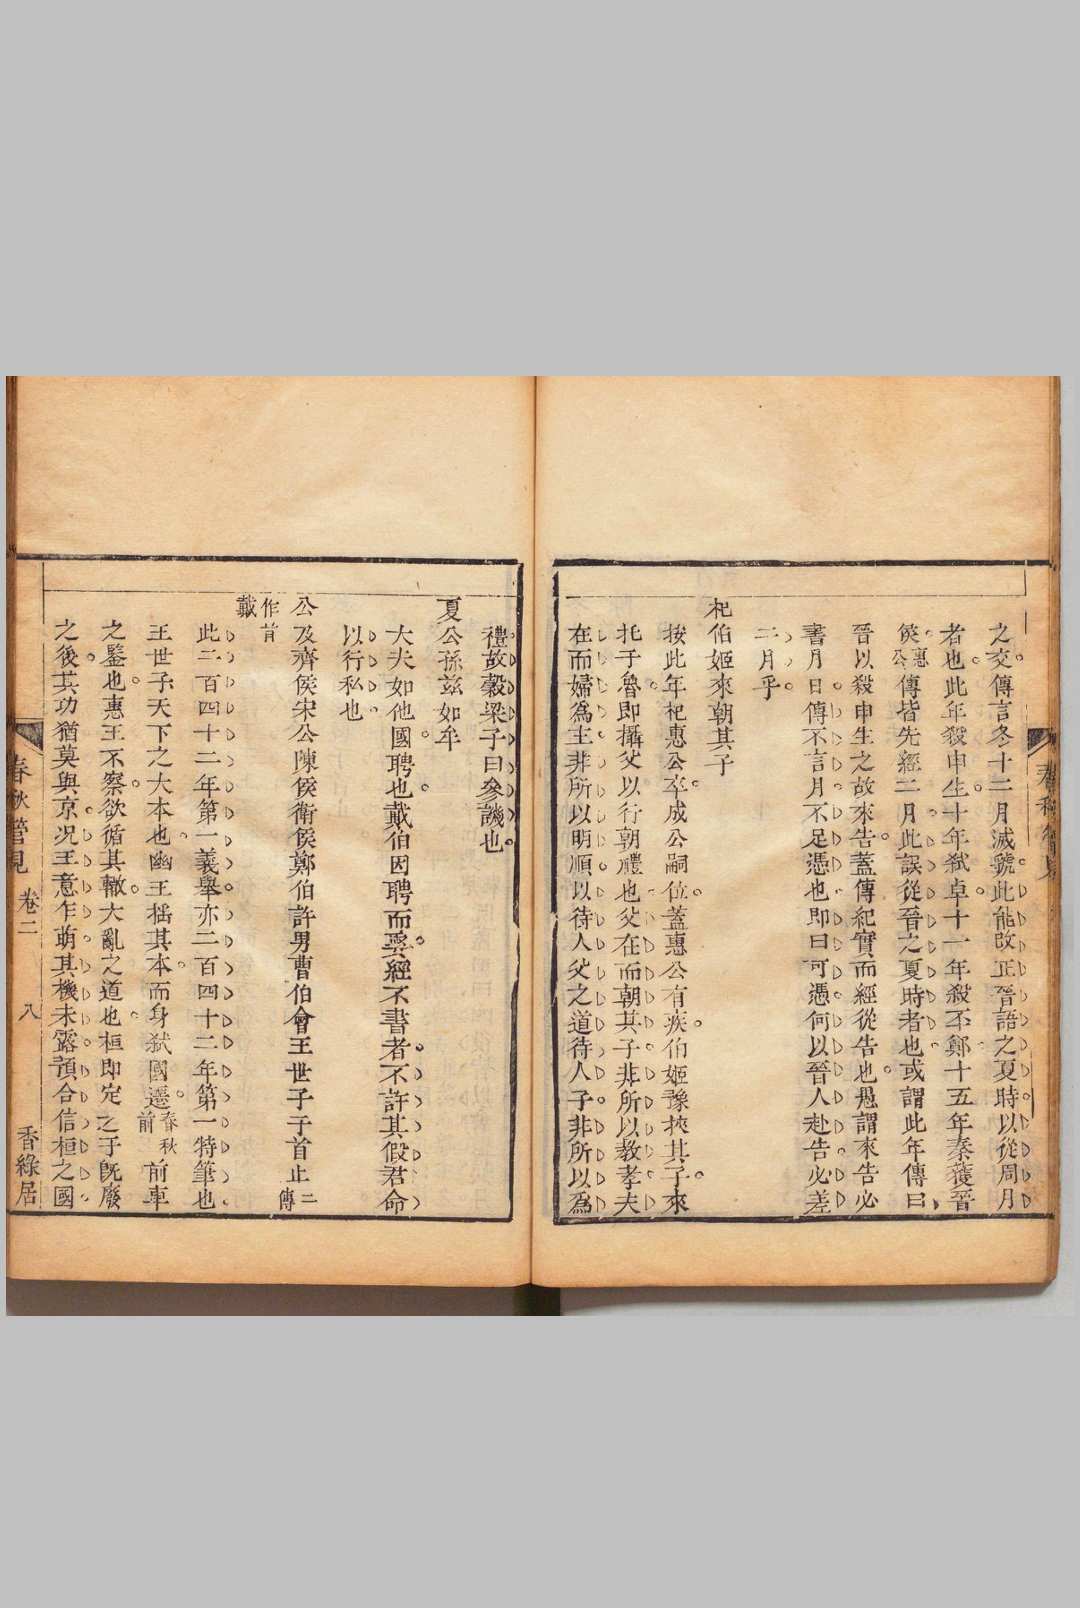 之交傳言冬十二月滅虢此能改正晉語之夏時以從周月
者也此年殺申生十年弑卓十一年殺丕鄭十五年秦獲晉
侯惠公傳皆先經二月此誤從晉之夏時者也或謂此年傳曰
晉以殺申生之故來告蓋傳紀實而經從告也愚謂來告必
書月日傳不言月不足憑也即曰可憑何以晉人赴告必差
二月乎
杞伯姬來朝其子
按此年杞惠公卒成公嗣位蓋惠公有疾伯姬豫挾其子來
托于魯即攝父以行朝禮也父在而朝其子非所以教孝夫
在而婦為主非所以明順以待人父之道待人子非所以為
春秋管見
禮故穀梁子曰參譏也
夏公孫茲如牟
大夫如他國聘也戴伯因聘而娶經不書者不許其假君命
以行私也
公及齊侯宋公陳侯衛侯鄭伯許男曹伯會王世子于首止二傳
作首戴
此二百四十二年第一義舉亦二百四十二年第一特筆也
王世子天下之大本也幽王搖其本而身弑國遷春秋前前車
之鑒也惠王不察欲循其轍大亂之道也桓即定之于既廢
之後其功猶莫與京况王意乍萌其機未露預合信桓之國
春秋管見 卷二 八 香綠居